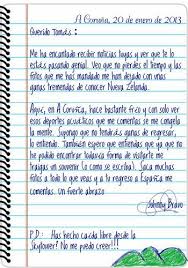 A Coruña, 20 de enero de 2013
Querido Tomás:
Me ha encantado recibir noticias tuyas y ver que te lo
estás pasando genial. Veo que no pierdes el tiempo y las
fotos que me has mandado me han dejado con unas
ganas tremendas de conocer Nueva Zelanda.
Aquí, en A Coruña, hace bastante frío y con solo ver
esos deportes acuáticos que me comentas se me congela
la mente. Supongo que no tendrás ganas de regresar,
lo entiendo. También espero que entiendas que ya que no
he podido encontrar todavía forma de visitarte me
traigas un souvenir (o como se escriba). Saca muchas
fotos a todo lo que veas a tu regreso a España me
comentas. Un fuerte abrazo
Johnny Bravo
P.D.: Has hecho caída libre desde la
Skytower? No me puedo creer!!!